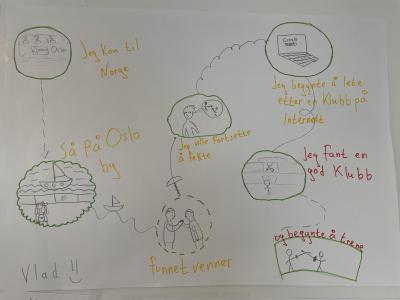 Jeg kom til
Norge
Så på Oslo
by
funnet venner
Jeg ville fortsette
å fekte
Google
Jeg begynte å lete
etter en Klubb på
Internett
Jeg Fant en
god Klubb
og begynte å trene
Vlad